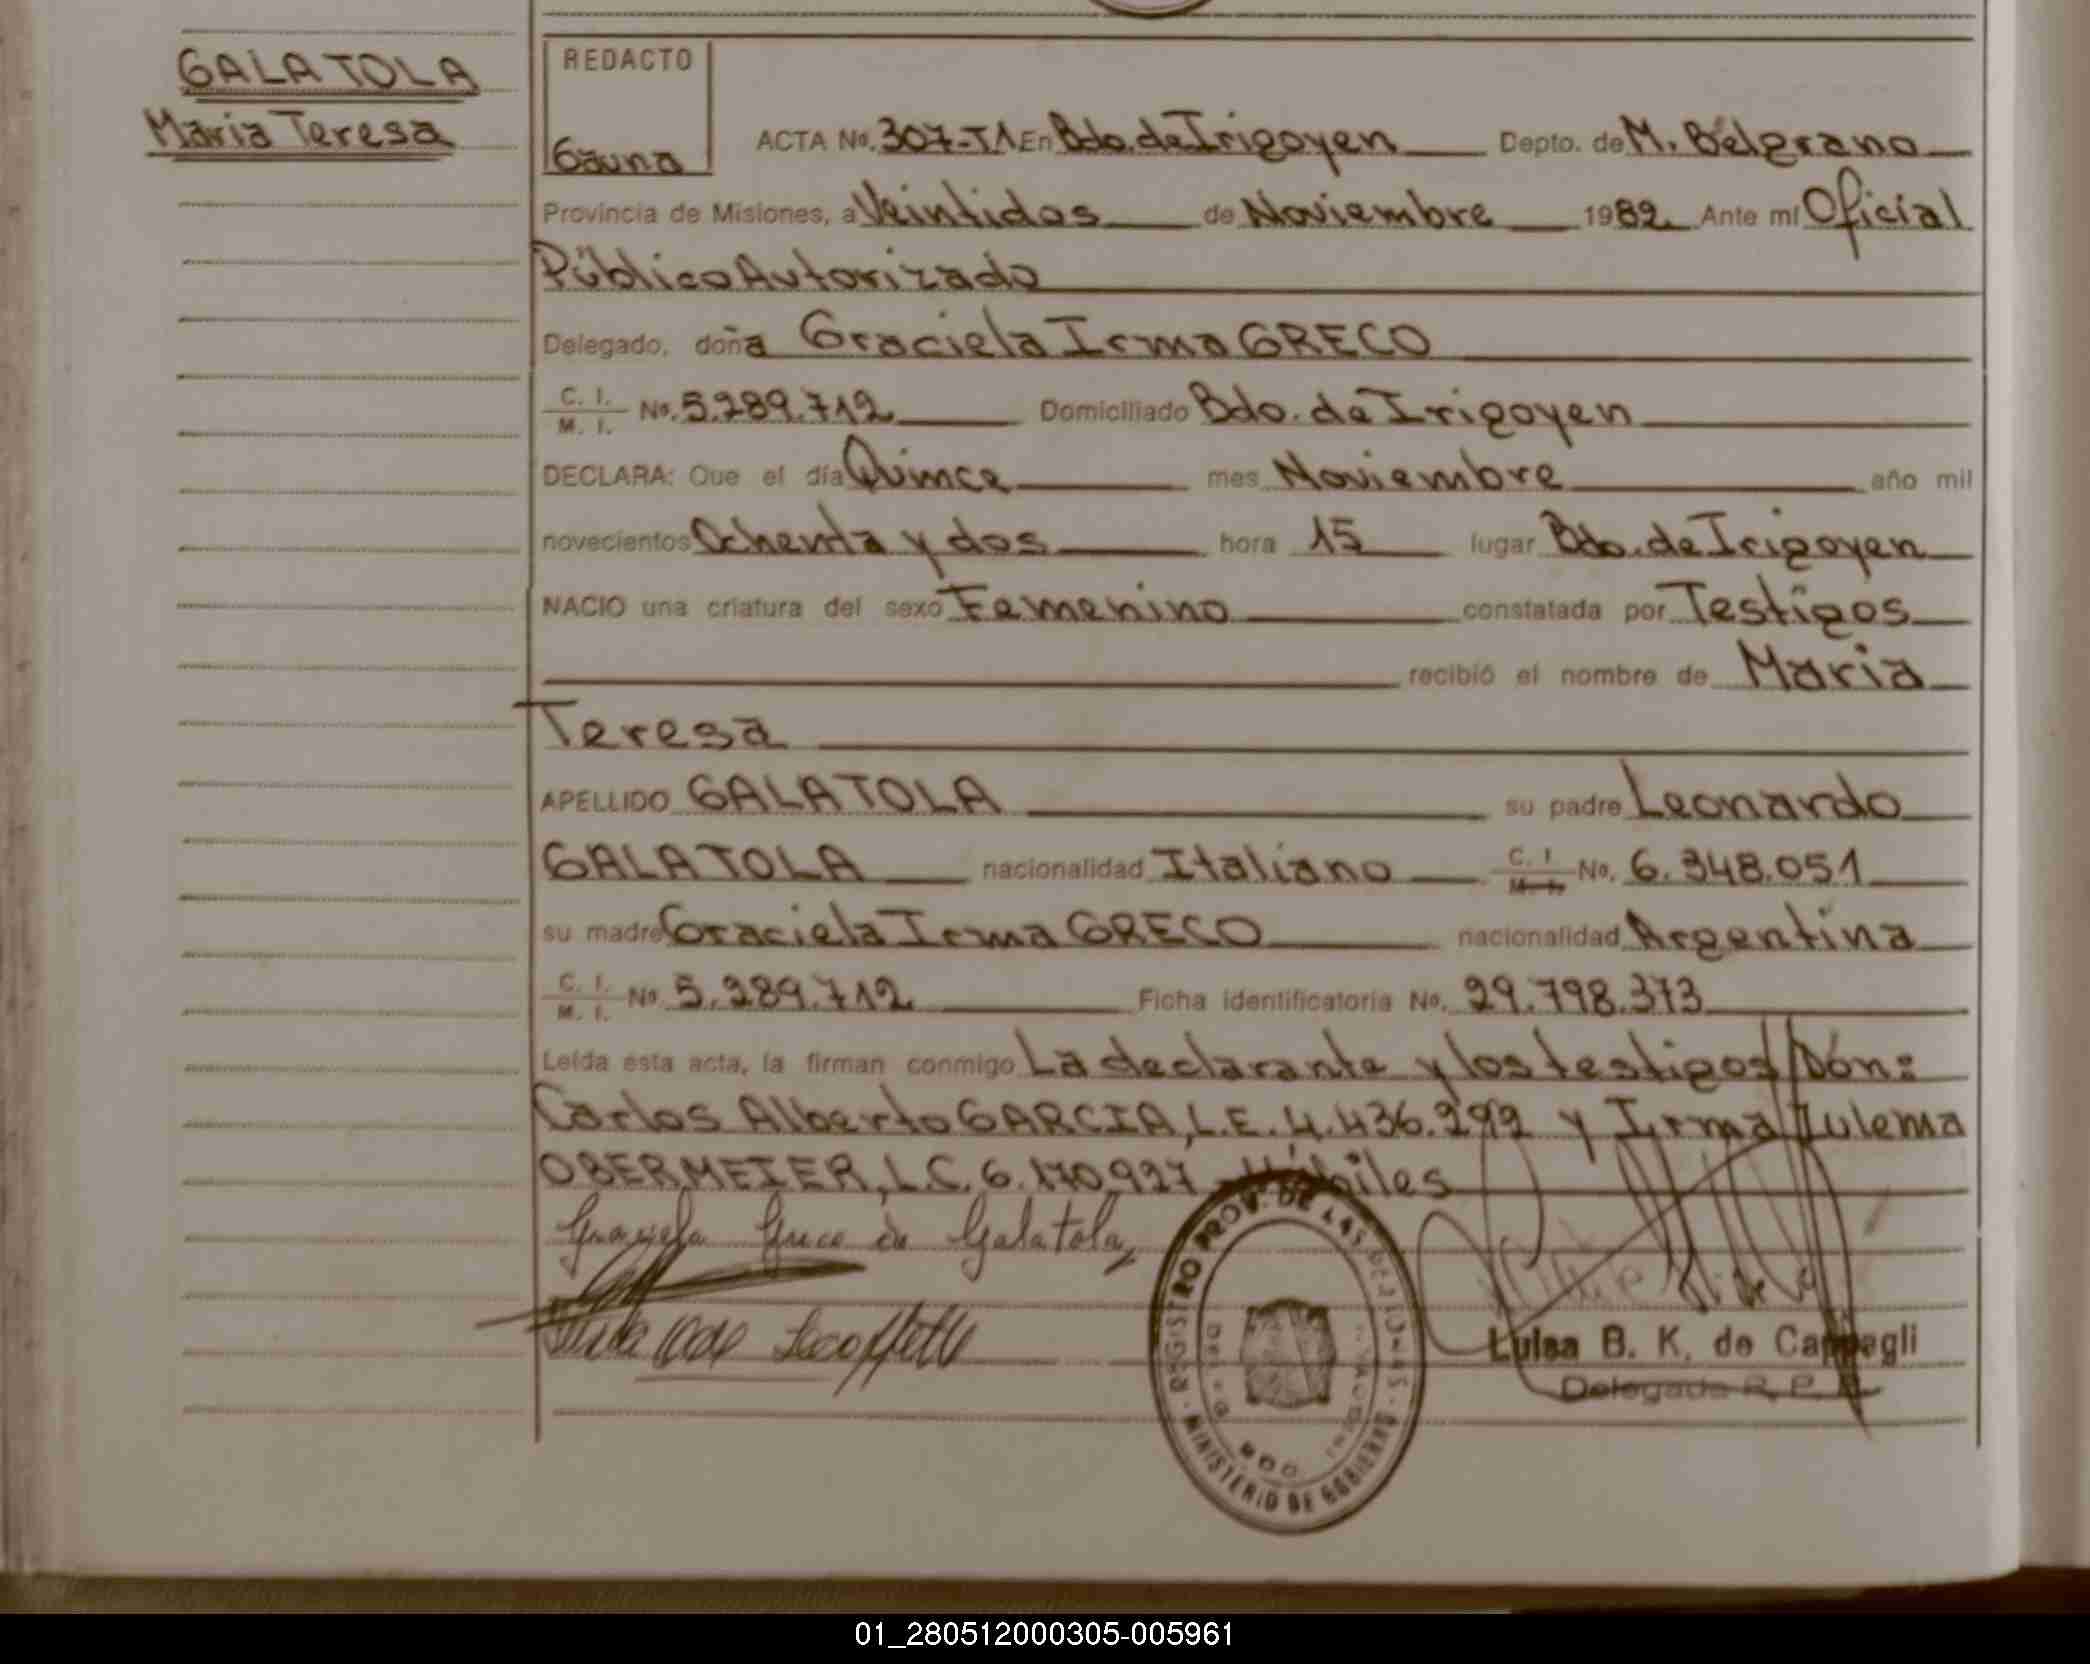 GALATOLA
Maria Teresa
REDACTO
Gauna
ACTA No. 307-T1 En Bdo. de Irigoyen Depto. de M. Belgrano
Provincia de Misiones, a Veintidos de Noviembre 1982 Ante mí Oficial
Público Autorizado
Delegado, doña Graciela Irma GRECO
C. I.
M. I. No. 5.289.712 Domiciliado Bdo. de Irigoyen
DECLARA: Que el día Quince mes Noviembre año mil
novecientos Ochenta y dos hora 15 lugar Bdo. de Irigoyen
NACIO una criatura del sexo Femenino constatada por Testigos
recibió el nombre de Maria
Teresa
APELLIDO GALATOLA su padre Leonardo
GALATOLA nacionalidad Italiano C. I. M. I. No. 6.348.051
su madre Graciela Irma GRECO nacionalidad Argentina
C. I.
M. I. No. 5.289.712 Ficha identificatoria No. 29.798.373
Leída ésta acta, la firman conmigo La declarante y los testigos Dón:
Carlos Alberto GARCIA, L.E. 4.436.292 y Irma Zulema
OBERMEIER, L.C. 6.170.927 - Hábiles
Graciela Greco de Galatola
REGISTRO PROV. DE LAS PERSONAS
MINISTERIO DE GOBIERNO
Luisa B. K. de Cappagli
Delegada R. P. P.
01_280512000305-005961